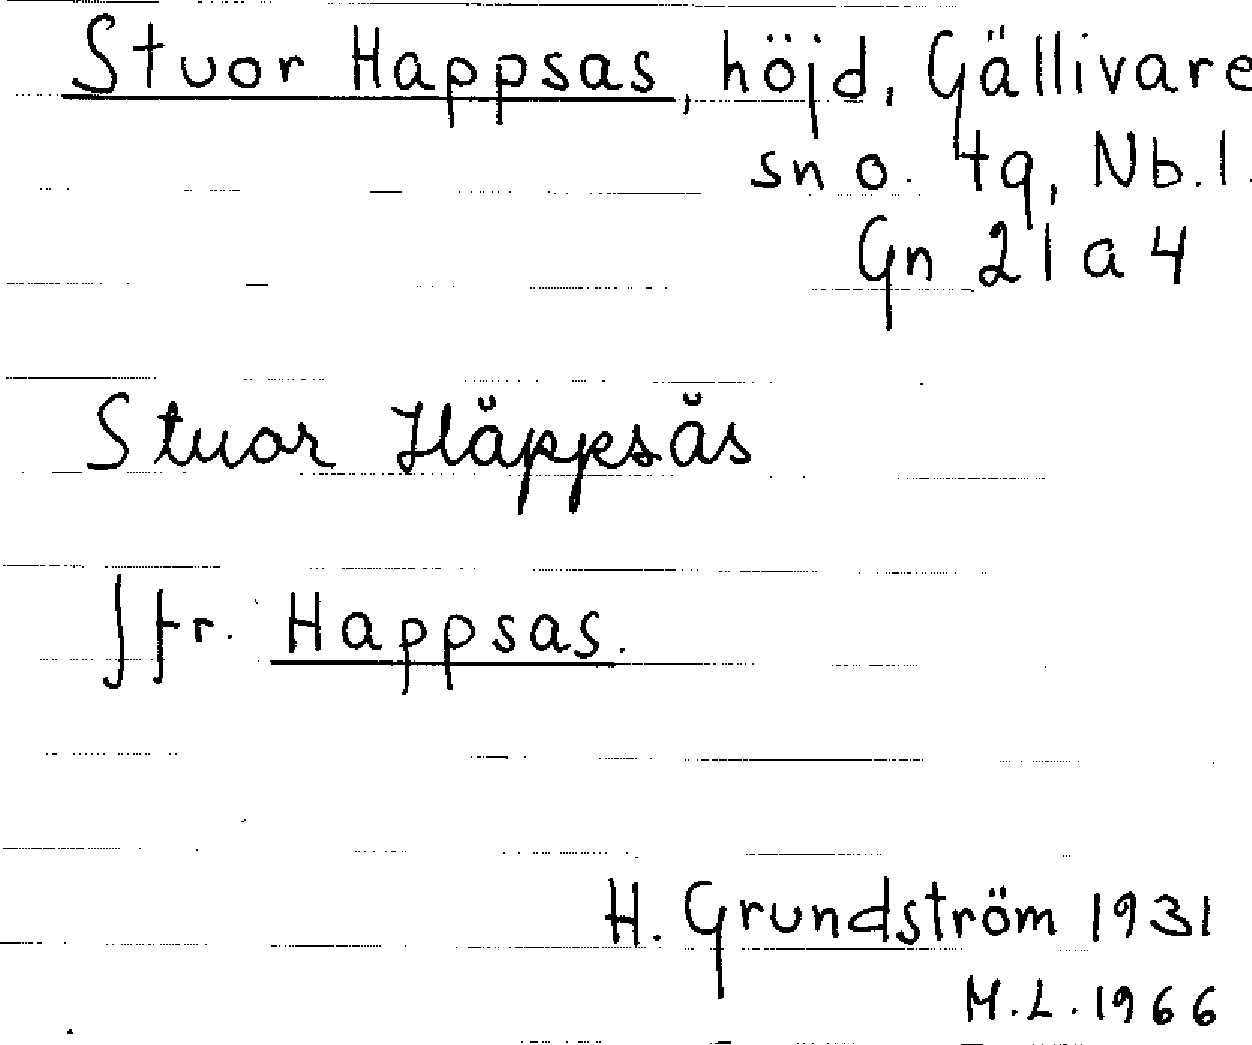 Stuor Happsas, höjd, Gällivare
sn o. tg, Nb.l.
Gn 21 a 4
Stuor Hăppsăs
Jfr. Happsas.
H. Grundström 1931
M.L. 1966